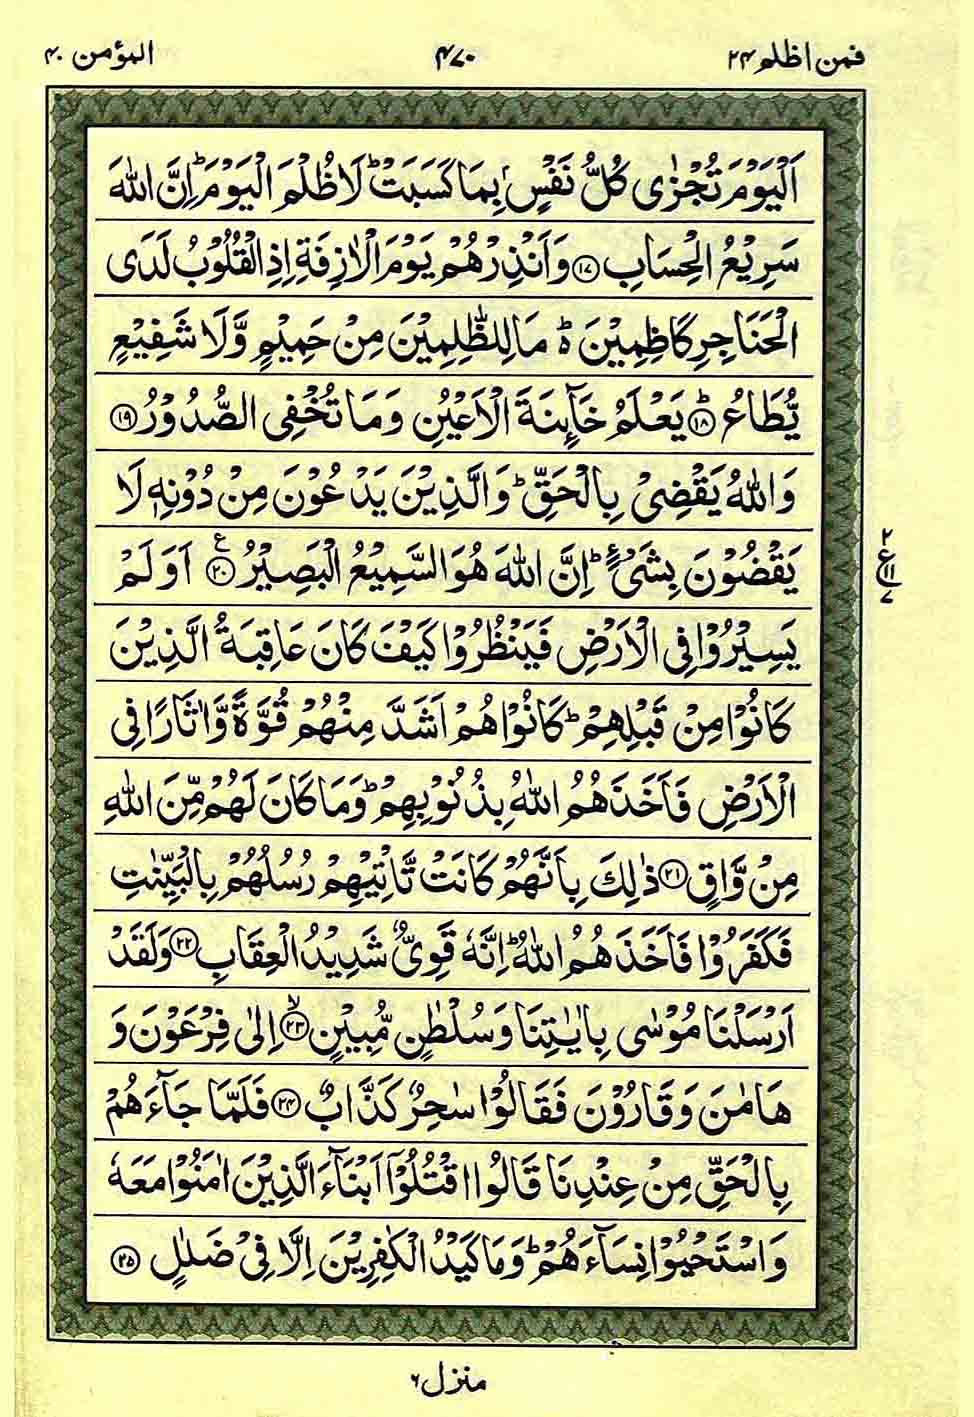 فمن اظلم ۲۴
۴۷۰
المؤمن ۴۰
اَلْيَوْمَ تُجْزٰى كُلُّ نَفْسٍۭ بِمَا كَسَبَتْ ؕ لَا ظُلْمَ الْيَوْمَ ؕ اِنَّ اللّٰهَ
سَرِيْعُ الْحِسَابِ ﴿۱۷﴾ وَاَنْذِرْهُمْ يَوْمَ الْاٰزِفَةِ اِذِ الْقُلُوْبُ لَدَى
الْحَنَاجِرِ كَاظِمِيْنَ ؕ۬ مَا لِلظّٰلِمِيْنَ مِنْ حَمِيْمٍ وَّلَا شَفِيْعٍ
يُّطَاعُ ﴿۱۸﴾ ؕ يَعْلَمُ خَآئِنَةَ الْاَعْيُنِ وَمَا تُخْفِى الصُّدُوْرُ ﴿۱۹﴾
وَاللّٰهُ يَقْضِىْ بِالْحَقِّ ؕ وَالَّذِيْنَ يَدْعُوْنَ مِنْ دُوْنِهٖ لَا
يَقْضُوْنَ بِشَىْءٍ ؕ اِنَّ اللّٰهَ هُوَ السَّمِيْعُ الْبَصِيْرُ ﴿۲۰﴾ ع اَوَلَمْ
۲ ع ۱۱ ۷
يَسِيْرُوْا فِى الْاَرْضِ فَيَنْظُرُوْا كَيْفَ كَانَ عَاقِبَةُ الَّذِيْنَ
كَانُوْا مِنْ قَبْلِهِمْ ؕ كَانُوْا هُمْ اَشَدَّ مِنْهُمْ قُوَّةً وَّاٰثَارًا فِى
الْاَرْضِ فَاَخَذَهُمُ اللّٰهُ بِذُنُوْبِهِمْ ؕ وَمَا كَانَ لَهُمْ مِّنَ اللّٰهِ
مِنْ وَّاقٍ ﴿۲۱﴾ ذٰلِكَ بِاَنَّهُمْ كَانَتْ تَّاْتِيْهِمْ رُسُلُهُمْ بِالْبَيِّنٰتِ
فَكَفَرُوْا فَاَخَذَهُمُ اللّٰهُ ؕ اِنَّهٗ قَوِىٌّ شَدِيْدُ الْعِقَابِ ﴿۲۲﴾ وَلَقَدْ
اَرْسَلْنَا مُوْسٰى بِاٰيٰتِنَا وَسُلْطٰنٍ مُّبِيْنٍ ﴿۲۳﴾ ۙ اِلٰى فِرْعَوْنَ وَ
هَامٰنَ وَقَارُوْنَ فَقَالُوْا سٰحِرٌ كَذَّابٌ ﴿۲۴﴾ فَلَمَّا جَآءَهُمْ
بِالْحَقِّ مِنْ عِنْدِنَا قَالُوا اقْتُلُوْۤا اَبْنَآءَ الَّذِيْنَ اٰمَنُوْا مَعَهٗ
وَاسْتَحْيُوْا نِسَآءَهُمْ ؕ وَمَا كَيْدُ الْكٰفِرِيْنَ اِلَّا فِىْ ضَلٰلٍ ﴿۲۵﴾
منزل ۶